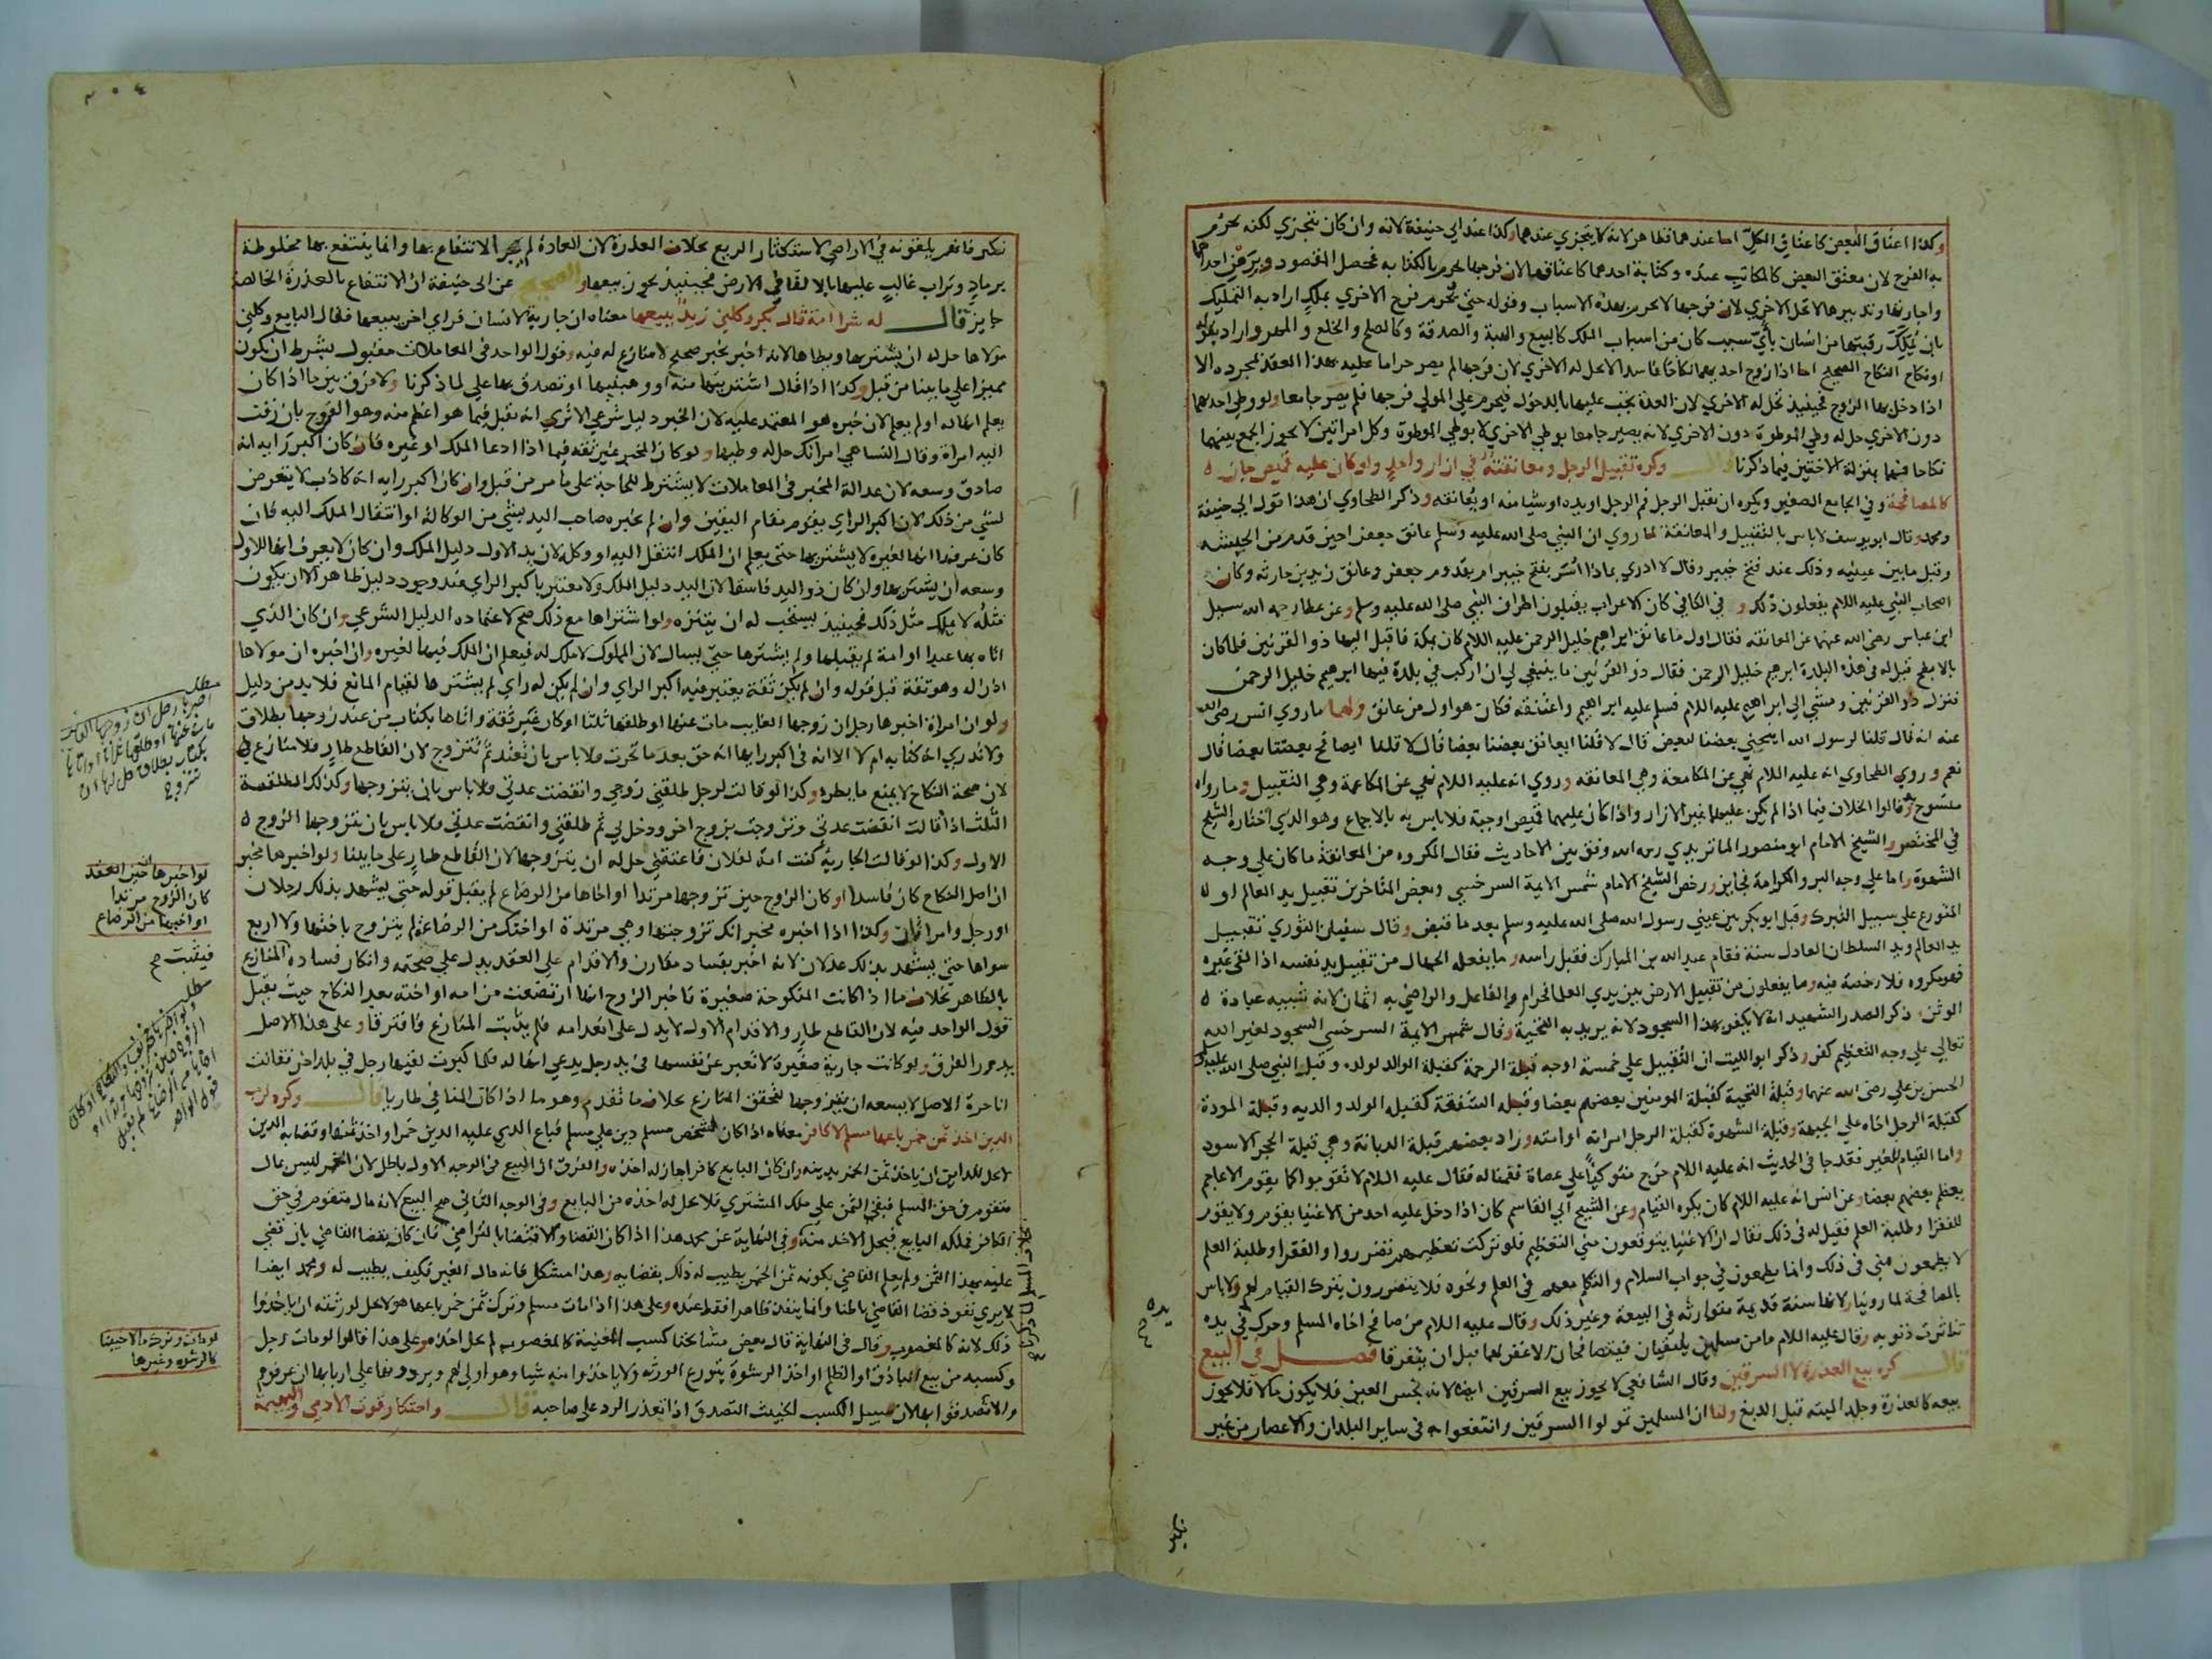 وكذا اعتاق البعض كاعتاق الكل اما عندهما فظاهر لانه لا يتجزي عندهما وكذا عند ابي حنيفة لانه وان كان يتجزي لكنه يحرم
به الفرج لان معتق البعض كالمكاتب عنده وكتابة احدهما كاعتاقها لان فرجها يحرم بالكتابة فحصل المقصود وبرهن احداهما
واجارتها وتدبيرها لا تحل الاخري لان فرجها لا يحرم بهذه الاسباب وقوله حتي يحرم فرج الاخري بملك اراد به التمليك
بان يملك رقبتها من انسان بأي سبب كان من اسباب الملك كالبيع والهبة والصدقة وكالصلح والخلع والمهر واراد بقوله
او نكاح النكاح الصحيح اما اذا زوج احديهما نكاحا فاسدا لا تحل له الاخري لان فرجها لم يصر حراما عليه بهذا العقد بمجرده الا
اذا دخل بها الزوج فحينيذ تحل له الاخري لان العدة يجب عليها بالدخول فيحرم علي المولي فرجها فلم يصر جامعا ولو وطي احدهما
دون الاخري حل له وطي الموطوة دون الاخري لانه يصير جامعا بوطي الاخري لا بوطي الموطوة وكل امراتين لا يجوز الجمع بينهما
نكاحا فهما بمنزلة الاختين فيما ذكرنا قال وكره تقبيل الرجل ومعانقته في ازار واحد ولو كان عليه قميص جاز ه
كالمصافحة وفي الجامع الصغير ويكره ان يقبل الرجل فم الرجل او يده او شيا منه او يعانقه وذكر الطحاوي ان هذا قول ابي حنيفة
ومحمد وقال ابو يوسف لا باس بالتقبيل والمعانقة لما روي ان النبي صلي الله عليه وسلم عانق جعفر احين قدم من الحبشة
وقبل ما بين عينيه وذلك عند فتح خيبر وقال لا ادري بماذا اسر بفتح خيبر ام بقدوم جعفر وعانق زيد بن حارثه وكان
اصحاب النبي عليه اللام يفعلون ذلك و في الكافي كان الاعراب يقبلون اطراف النبي صلي الله عليه وسلم وعن عطا رحمه الله سيل
ابن عباس رضي الله عنهما عن المعانقه فقال اول ما عانق ابراهيم خليل الرحمن عليه اللام كان بمكة فاقبل اليها ذو القرنين فلما كان
بالابطح قيل له في هذه البلدة ابرهيم خليل الرحمن فقال ذو القرنين ما ينبغي لي ان اركب في بلدة فيها ابرهيم خليل الرحمن
فنزل ذو القرنين ومشي الي ابراهيم عليه اللام فسلم عليه ابراهيم واعتنقه فكان هو اول من عانق ولهما ما روي انس رضي الله
عنه انه قال قلنا لرسول الله اينحني بعضنا لبعض قال لا قلنا ايعانق بعضنا بعضا قال لا قلنا ايصافح بعضنا بعضا قال
نعم وروي الطحاوي انه عليه اللام نهي عن المكامعة وهي المعانقه وروي انه عليه اللام نهي عن المكاعمة وهي التقبيل وما رواه
منسوخ وقالوا الخلاف فيما اذا لم يكن عليهما غير الازار واذا كان عليهما قميص او جبة فلا باس به بالاجماع وهو الذي اختاره الشيخ
في المختصر والشيخ الامام ابو منصور الماتريدي رحمه الله وفق بين الاحاديث فقال المكروه من المعانقة ما كان علي وجه
الشهوة واما علي وجه البر والكرامة فجايز ورخص الشيخ الامام شمس الايمة السرخسي وبعض المتاخرين تقبيل يد العالم او
المتورع علي سبيل التبرك وقبل ابو بكر بين عيني رسول الله صلي الله عليه وسلم بعد ما قبض وقال سفيان الثوري تقبيل
يد العالم ويد السلطان العادل سنة فقام عبد الله بن المبارك فقبل راسه وما يفعله الجهال من تقبيل يد نفسه اذا لقي غيره
فهو مكروه فلا رخصة فيه وما يفعلون من تقبيل الارض بين يدي العلما فحرام والفاعل والراضي به اثمان لانه شبيه عبادة
الوثن وذكر الصدر الشهيد انه لا يكفر بهذا السجود لانه يريد به التحية وقال شمس الايمة السرخسي السجود لغير الله
تعالي علي وجه التعظيم كفر وذكر ابو الليث ان التقبيل علي خمسة اوجه قبلة الرحمة كقبلة الوالد لولده وقبل النبي صلي الله عليه
الحسن بن علي رضي الله عنهما وقبلة التحية كقبلة المومنين بعضهم بعضا وقبلة الشفقة كقبلة الولد والديه وقبلة المودة
كقبلة الرجل اخاه علي الجبهة وقبلة الشهوة كقبلة الرجل امراته او امته وزاد بعضهم قبلة الديانة وهي قبلة الحجر الاسود
واما القيام للغير فقد جا في الحديث انه عليه اللام خرج متوكيا علي عصاة فقمنا له فقال عليه اللام لا تقوموا كما يقوم الاعاجم
يعظم بعضهم بعضا وعن انس انه عليه اللام كان يكره القيام وعن الشيخ ابي القاسم كان اذا دخل عليه احد من الاغنيا يقوم ولا يقوم
للفقرا وطلبة العلم فقيل له في ذلك فقال ان الاغنيا يتوقعون مني التعظيم فلو تركت تعظيمهم تضرروا والفقرا وطلبة العلم
لا يطمعون مني في ذلك وانما يطمعون في جواب السلام والتكلم معهم في العلم ونحوه فلا يتضررون بترك القيام لهم ولا باس
بالمصافحة لما روينا ولانها سنة قديمة متوارثه في البيعة وغير ذلك وقال عليه اللام من صافح اخاه المسلم وحرك في يده
تناثرت ذنوبه وقال عليه اللام ما من مسلمين يلتقيان فيتصافحان الا غفر لهما قبل ان يتفرقا فصل في البيع
قال كره بيع العذرة لا السرقين وقال الشافعي لا يجوز بيع السرقين ايضا لانه نجس العين فلا يكون مالا فلا يجوز
بيعه كالعذرة وجلد الميته قبل الدبغ ولنا ان المسلمين تمولوا السرقين وانتفعوا به في ساير البلدان والاعصار من غير
يده
نكير
٢٠٤
نكير فانهم يلقونه في الاراضي لاستكثار الريع بخلاف العذرة لان العادة لم تجر الانتفاع بها وانما ينتفع بها مخلوطة
برماد وتراب غالب عليها بالالقا في الارض فحينيذ يجوز بيعها والصحيح عن ابي حنيفة ان الانتفاع بالعذرة الخالصة
جايز قال له شرا امة قال بكر وكلني زيد ببيعها معناه ان جارية لانسان فراي اخر يبيعها فقال البايع وكلني
مولاها حل له ان يشتريها ويطاها لانه اخبر بخبر صحيح لا منازع له فيه وقول الواحد في المعاملات مقبول بشرط ان يكون
مميزا علي ما بينا من قبل وكذا اذا قال اشتريتها منه او وهبنيها او تصدق بها علي لما ذكرنا ولا فرق بين ما اذا كان
يعلم انها له او لم يعلم لان خبره هو المعتمد عليه لان الخبر دليل شرعي الا تري انه يقبل فيما هو اعظم منه وهو الفروج بان زفت
اليه امراة وقال النسا هي امراتك حل له وطيها ولو كان المخبر غير ثقه فيما اذا ادعا الملك او غيره فان كان اكبر رايه انه
صادق وسعه لان عدالة المخبر في المعاملات لا يشترط للحاجة علي ما مر من قبل وان كان اكبر رايه انه كاذب لا يتعرض
لشي من ذلك لان اكبر الراي يقوم مقام اليقين وان لم يخبره صاحب اليد بشي من الوكالة او انتقال الملك اليه فان
كان عرفها انها لغيره لا يشتريها حتي يعلم ان الملك انتقل اليه او وكله لان يد الاول دليل الملك وان كان لا يعرف انها للاول
وسعه ان يشتريها وان كان ذو اليد فاسقا لان اليد دليل الملك ولا معتبر باكبر الراي عند وجود دليل ظاهر الا ان يكون
مثله لا يملك مثل ذلك فحينيذ يستحب له ان يتنزه ولو اشتراها مع ذلك صح لاعتماده الدليل الشرعي وان كان الذي
اتاه بها عبدا او امة لم يقبلها ولم يشترها حتي يسال لان المملوك لا ملك له فيعلم ان الملك فيها لغيره وان اخبره ان مولاها
اذن له وهو ثقة قبل قوله وان لم يكن ثقة يعتبر فيه اكبر الراي وان لم يكن له راي لم يشترها لقيام المانع فلا بد من دليل
ولو ان امراة اخبرها رجل ان زوجها الغايب مات عنها او طلقها ثلثا او كان غير ثقة واتاها بكتاب من عند زوجها بطلاق
ولا تدري انه كتابه ام لا الا انه في اكبر رايها انه حق بعد ما تحرت فلا باس بان تعتد ثم تتزوج لان القاطع طار فلا منازع في
لان صحة النكاح لا يمنع ما يطره وكذا لو قالت لرجل طلقني زوجي وانقضت عدتي فلا باس بان يتزوجها وكذلك المطلقة
الثلث اذا قالت انقضت عدتي وتزوجت بزوج اخر ودخل بي ثم طلقني وانقضت عدتي فلا باس بان يتزوجها الزوج ه
الاول وكذا لو قالت الجارية كنت امة لفلان فاعتقني حل له ان يتزوجها لان القاطع طار علي ما بينا ولو اخبرها مخبر
ان اصل النكاح كان فاسدا او كان الزوج حين تزوجها مرتدا او اخاها من الرضاع لم يقبل قوله حتي يشهد بذلك رجلان
او رجل وامراتان وكذا اذا اخبره مخبر انك تزوجتها وهي مرتدة او اختك من الرضاعة لم يتزوج باختها ولا اربع
سواها حتي يشهد بذلك عدلان لانه اخبر بفساد مقارن والاقدام علي العقد يدل علي صحته وانكار فساده المنازع
بالظاهر بخلاف ما اذا كانت المنكوحة صغيرة فاخبر الزوج انها ارتضعت من امه او اخته بعد النكاح حيث يقبل
قول الواحد فيه لان القاطع طار والاقدام الاول لا يدل علي انعدامه فلم يثبت المنازع فافترقا وعلي هذا الاصل
يدور الفرق ولو كانت جارية صغيرة لا تعبر عن نفسها في يد رجل يدعي انها له فلما كبرت لقيها رجل في بلد اخر فقالت
انا حرة الاصل لا يسعه ان يتزوجها لتحقق المنازع بخلاف ما تقدم وهو ما اذا كان المنافي طاريا قال وكره لرب
الدين اخذ ثمن خمر باعها مسلم لا كافر معناه اذا كان لشخص مسلم دين علي مسلم فباع الذي عليه الدين خمرا واخذ ثمنها وقضا به الدين
لا يحل للداين ان ياخذ ثمن الخمر بدينه وان كان البايع كافرا جاز له اخذه والفرق ان البيع في الوجه الاول باطل لان الخمر ليس بمال
متقوم في حق المسلم فبقي الثمن علي ملك المشتري فلا يحل له اخذه من البايع وفي الوجه الثاني صح البيع لانه مال متقوم في حق
الكافر فملكه البايع فيحل الاخذ منه وفي النهاية عن محمد هذا اذا كان القضا والاقتضا بالتراضي فان كان بقضا القاضي بان قضي
عليه بهذا الثمن ولم يعلم القاضي بكونه ثمن الخمر يطيب له ذلك بقضايه وهذا مشكل فانه مال الغير فكيف يطيب له ومحمد ايضا
لا يري نفوذ قضا القاضي باطنا وانما ينفذ ظاهرا فقط عنده وعلي هذا اذا مات مسلم وترك ثمن خمر باعها هو لا يحل لورثته ان ياخذوا
ذلك لانه كالمغصوب وقال في النهاية قال بعض مشايخنا كسب المغنية كالمغصوب لم يحل اخذه وعلي هذا قالوا لو مات رجل
وكسبه من بيع الباذق او الظلم او اخذ الرشوة يتورع الورثه ولا ياخذوا منه شيا وهو اولي لهم ويردونها علي اربابها ان عرفوهم
والا تصدقوا بها لان سبيل الكسب الخبيث التصدق اذا تعذر الرد علي صاحبه قال واحتكار قوت الادمي والبهيمة
مطلب
اخبرها رجل ان زوجها الغايب
مات عنها او طلقها ثلاثا او اتاها
بكتاب بطلاق حل لها ان
تتزوج
لو اخبرها حين العقد
كان الزوج مرتدا
او اخيها من الرضاع
فيثبت صح
مطلب
لو مات وترك مالا خبيثا
كالرشوة وغيرها